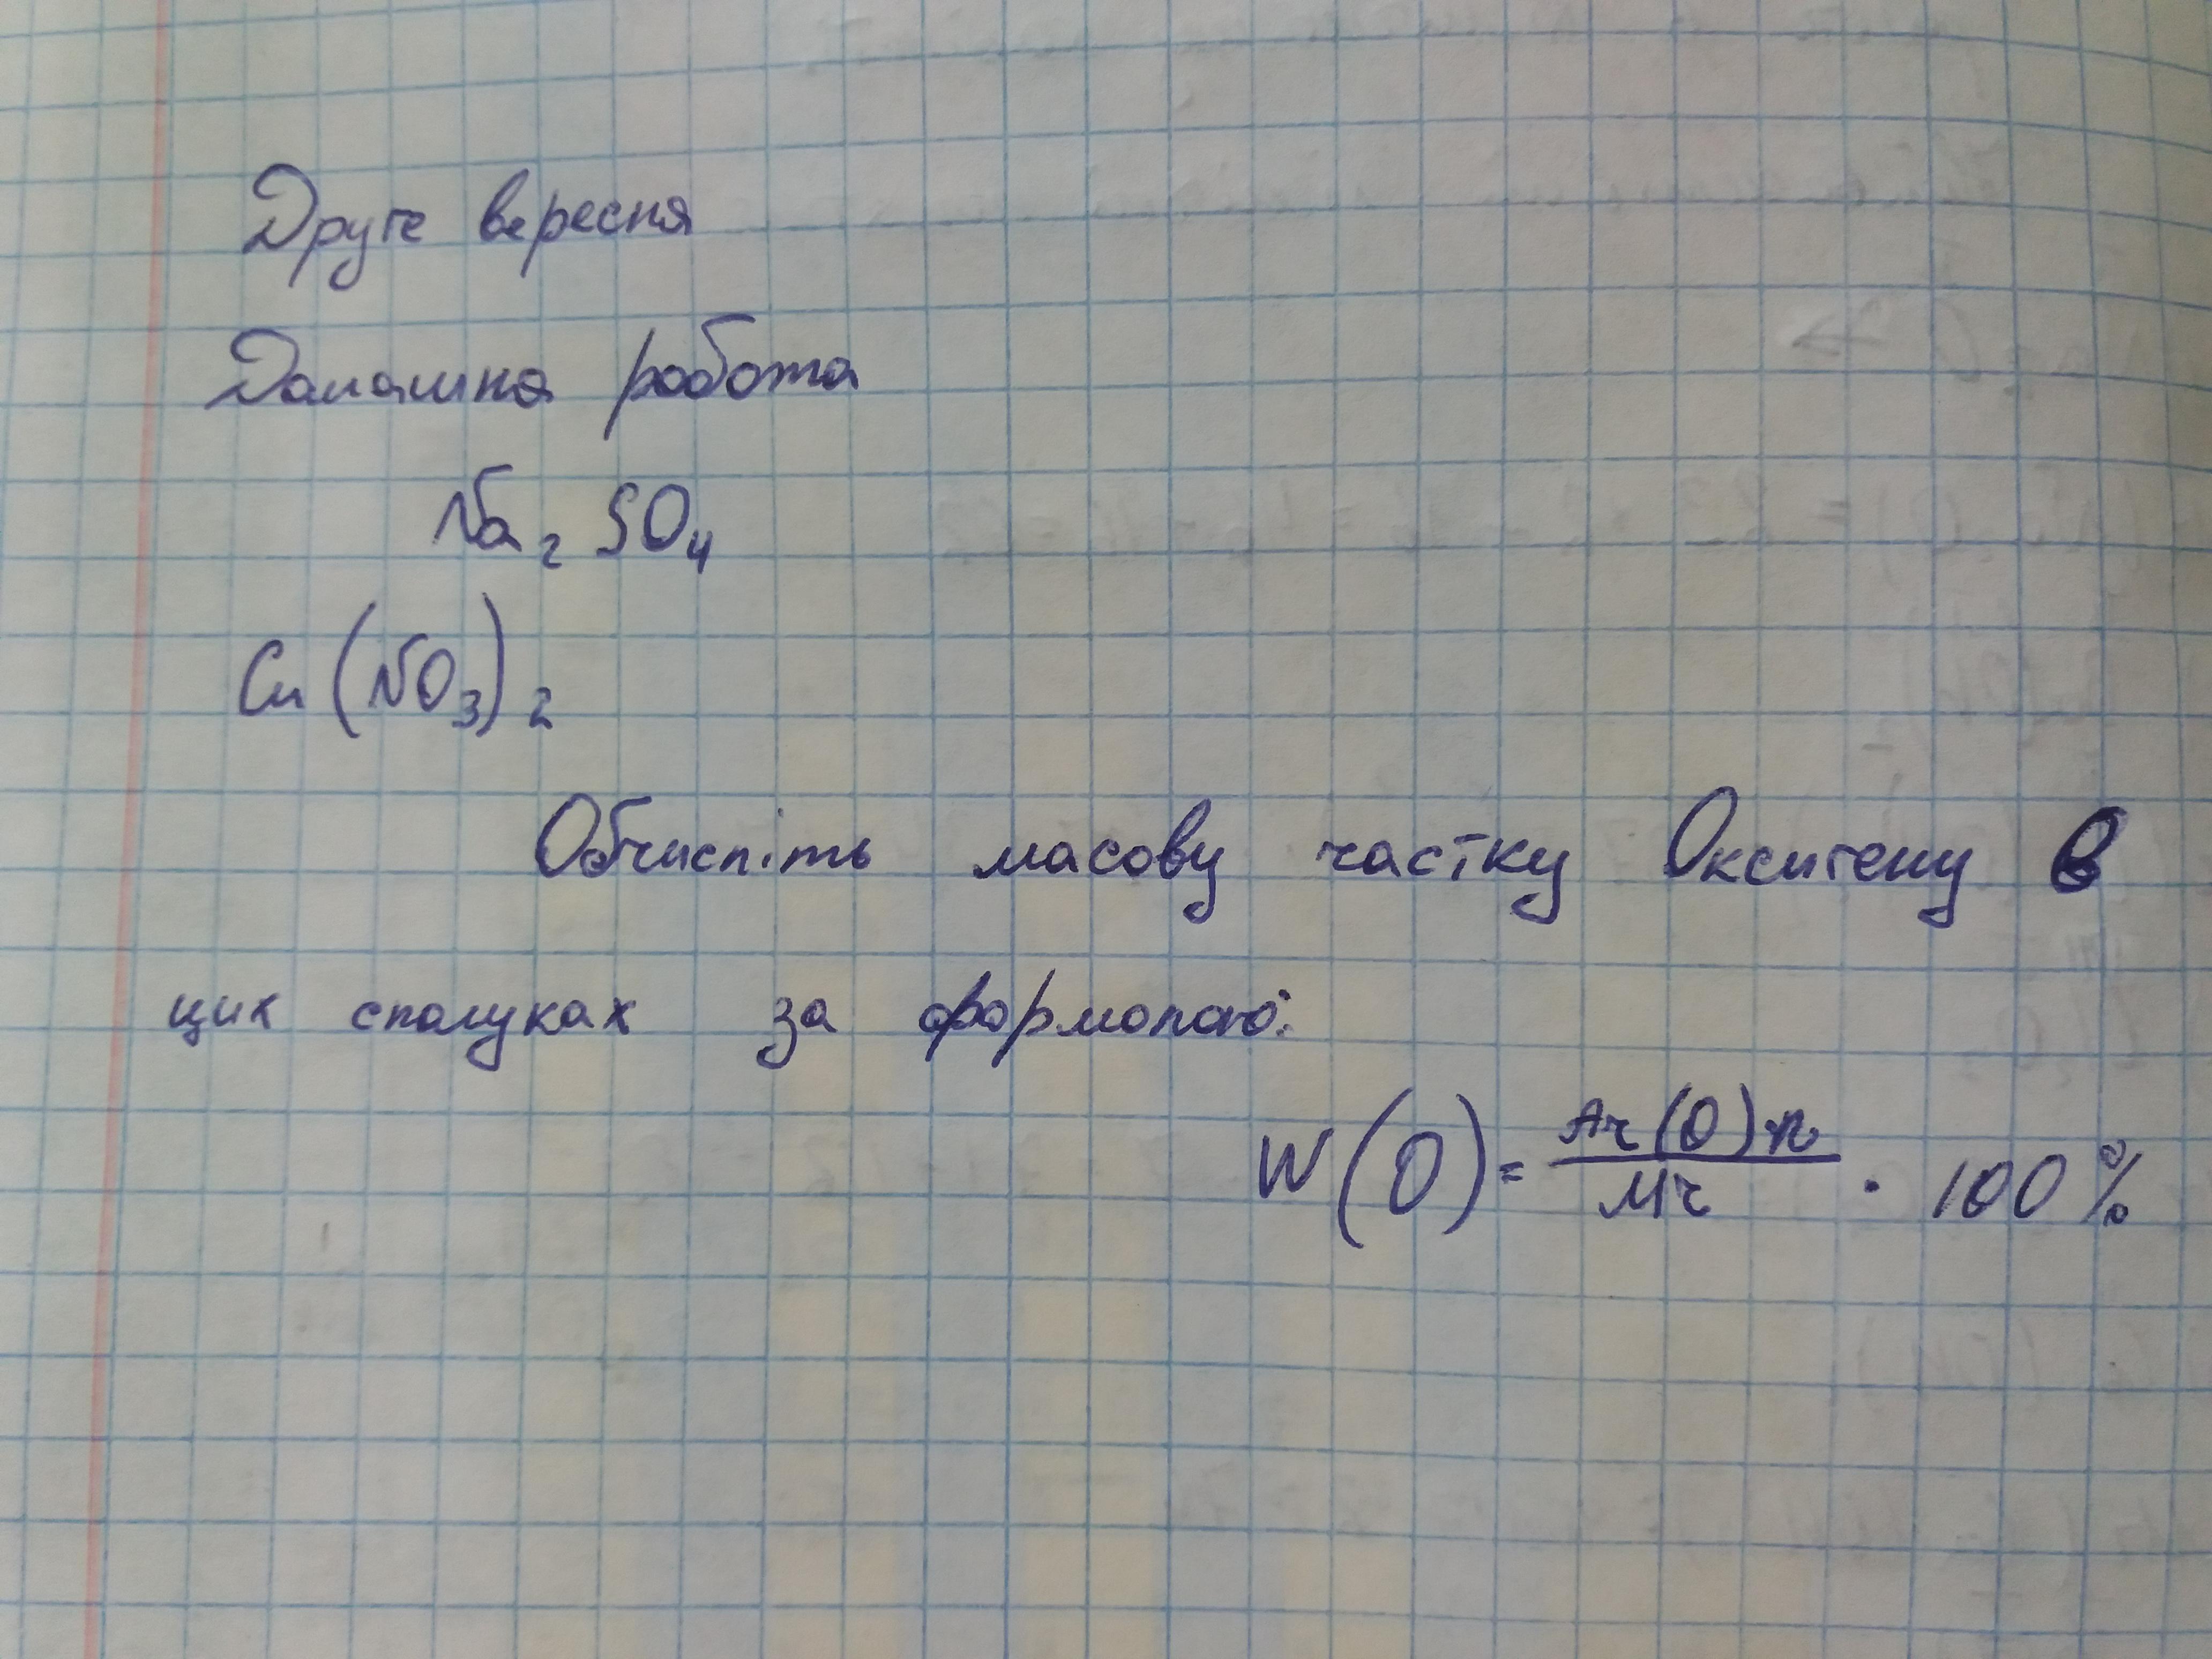 Друге вересня
Домашня робота
Na₂SO₄
Cu(NO₃)₂
Обчисліть масову частку Оксигену в
цих сполуках за формолою:
W(O) = Ar(O)n / Mr · 100%